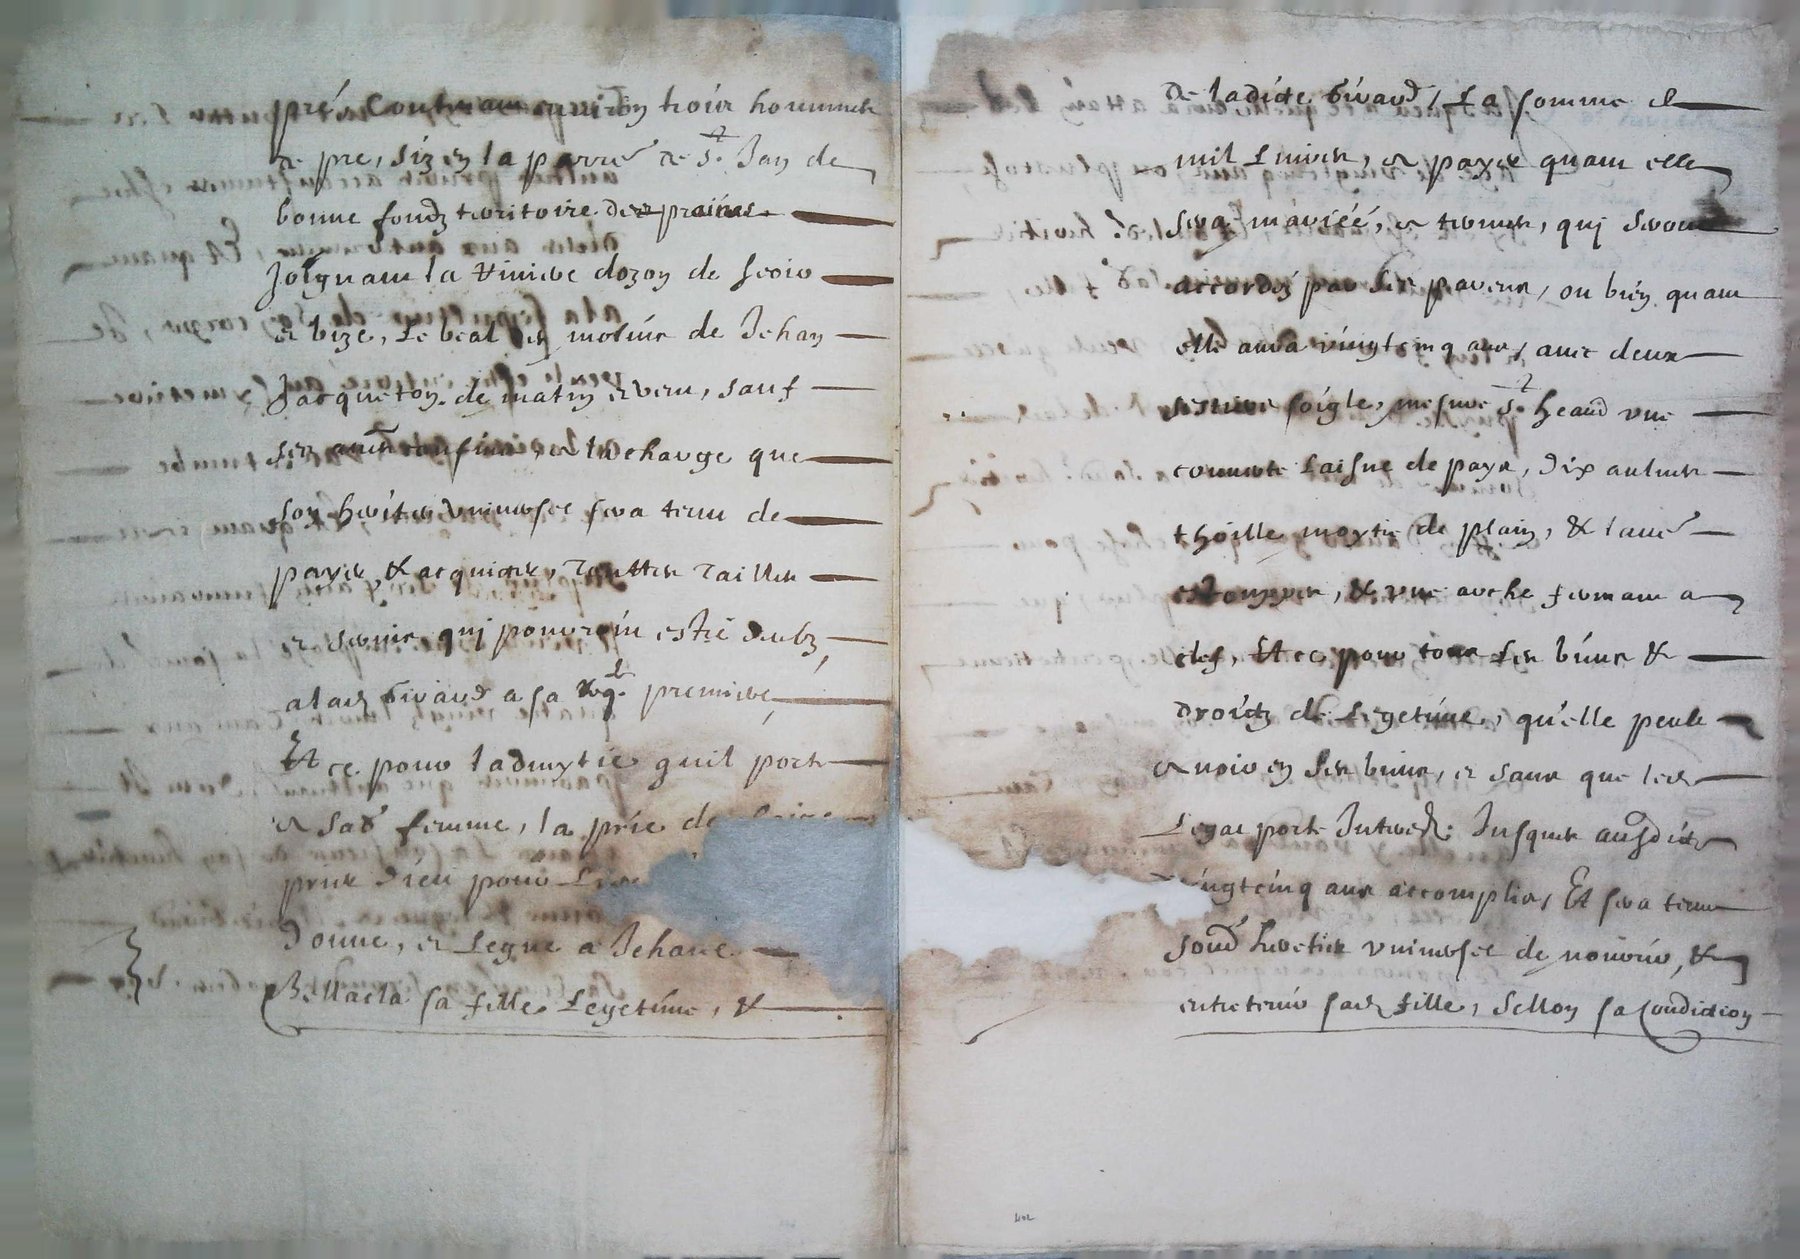 pré Contenant environ trois hommes
de pre, siz en la parre de St. Jan de
bonne fondz territoire des prairies
Joignant la riviere dozon de soir
et bize, Le beal des molins de Jehan
Jacqueton de matin et vent, sauf
ses confins, a la charge que
son heritier universel sera tenu de
payer & acquicter, Touttes Tailles
et servis qui pouvroint estre deubz
alad Giraud a sa req premiere
Et ce pour ladmytié quil porte
a sad femme, la prie de
prier Dieu pour
Donne, et Legue a Jehane
Bellacla sa fille Legetime, &
de ladicte Giraud, La somme de
mil Livres, a payer quant elle
sera mariéé, a termes, qui seront
accordéz par ses parens, ou bien quant
elle aura vingtcinq ans, avec deux
sestiers soigle, mesure St. heand une
couverte Laisne de pays, Dix aulnes
thoille moytie de plain, & l'autre
estouppes, & une arche fermant a
clef, Et ce pour tous ses biens &
droictz de Legetime, qu'elle peult
avoir en ses biens, et sans que led
Legat porte Interestz Jusques ausdicts
vingtcinq ans accomplis, Et sera tenu
sond heretier universel de nourrir, &
entretenir sad fille, sellon sa Condiction
402